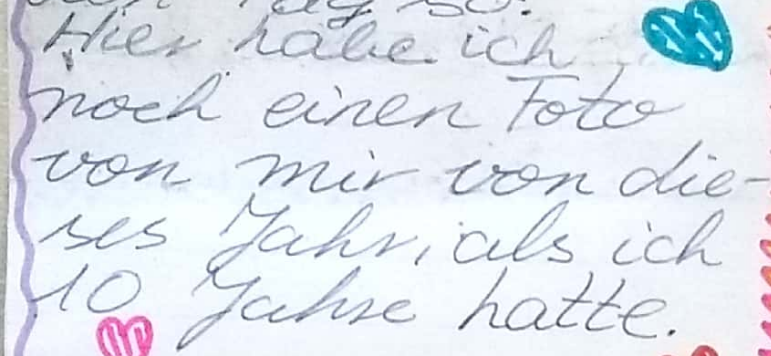 den Tag so.
Hier habe ich
noch einen Foto
von mir von die-
ses Jahr, als ich
10 Jahre hatte.